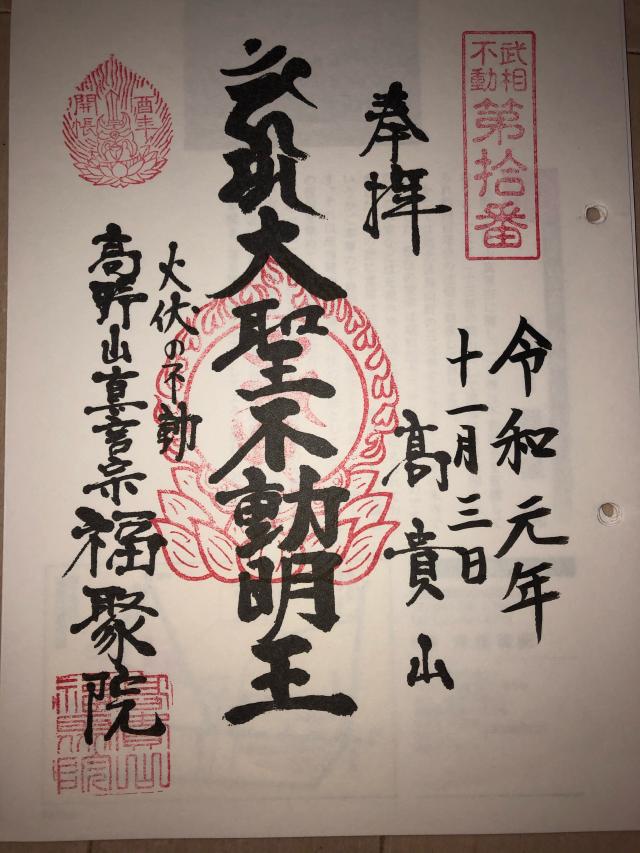 武相
不動
第拾番
令和元年
十一月三日
奉拝
髙貴山
大聖不動明王
火伏の不動
高野山真言宗福聚院
酉年
開帳